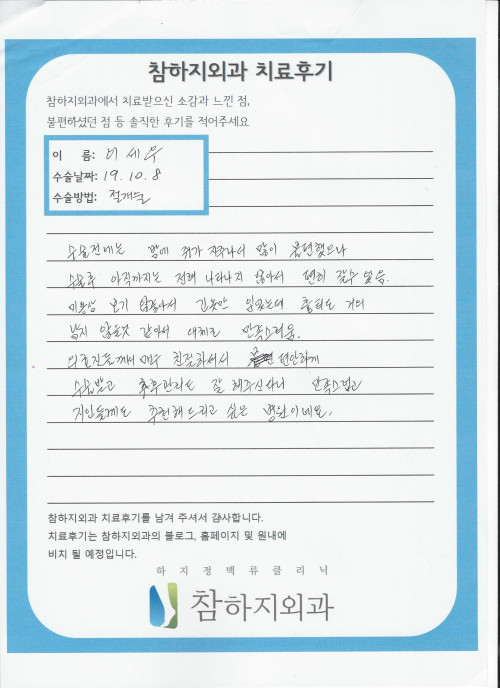 참하지외과 치료후기
참하지외과에서 치료받으신 소감과 느낀 점,
불편하셨던 점 등 솔직한 후기를 적어주세요
이 름: 이세우
수술날짜: 19. 10. 8
수술방법: 절개술
수술전에는 밤에 쥐가 자주나서 많이 불편했으나
수술후 아직까지는 전혀 나타나지 않아서 편히 잘수 있음.
미용상 보기 않좋아서 긴옷만 입었는데 흉터도 거의
남지 않을것 같아서 대체로 만족스러움.
의료진들께서 매우 친절하셔서 편안하게
수술받고 후관리도 잘 해주신다니 만족스럽고
지인들께도 추천해드리고 싶은 병원이네요.
참하지외과 치료후기를 남겨 주셔서 감사합니다.
치료후기는 참하지외과의 블로그, 홈페이지 및 원내에
비치 될 예정입니다.
하지정맥류클리닉
참하지외과